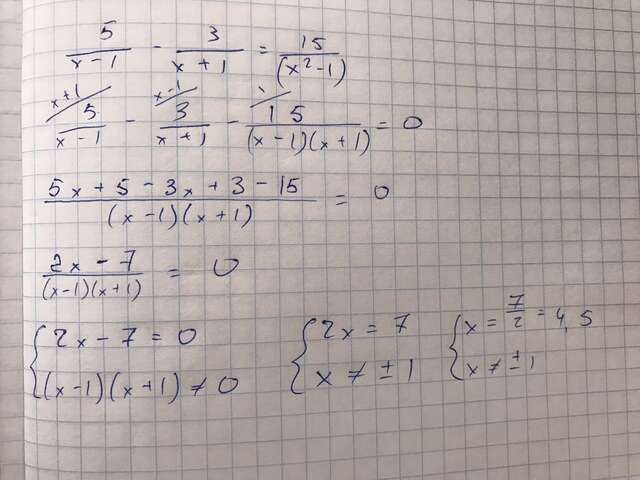 5/(x - 1) - 3/(x + 1) = 15/(x² - 1)
x+1 x-1 1
5/(x - 1) - 3/(x + 1) - 15/((x - 1)(x + 1)) = 0
(5x + 5 - 3x + 3 - 15)/((x - 1)(x + 1)) = 0
(2x - 7)/((x-1)(x+1)) = 0
{ 2x - 7 = 0 { 2x = 7 { x = 7/2 = 4,5
(x-1)(x+1) ≠ 0 x ≠ ±1 x ≠ ±1